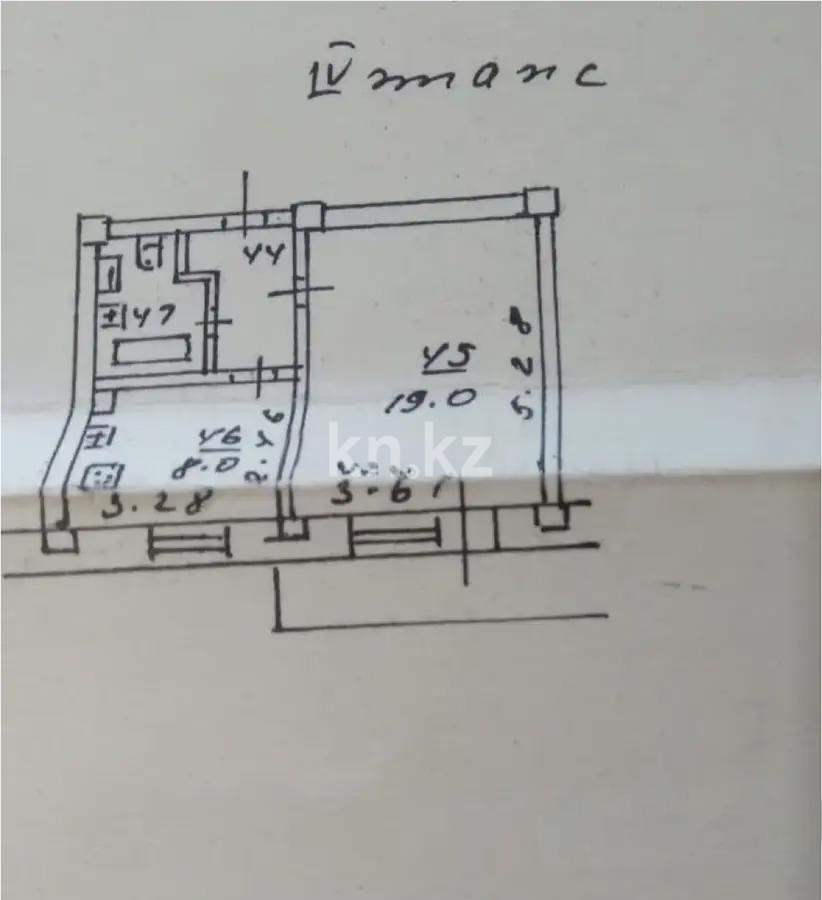 IV этаж
44
47
45
19.0
5.28
46
8.0
2.46
3.28
3.61
kn.kz